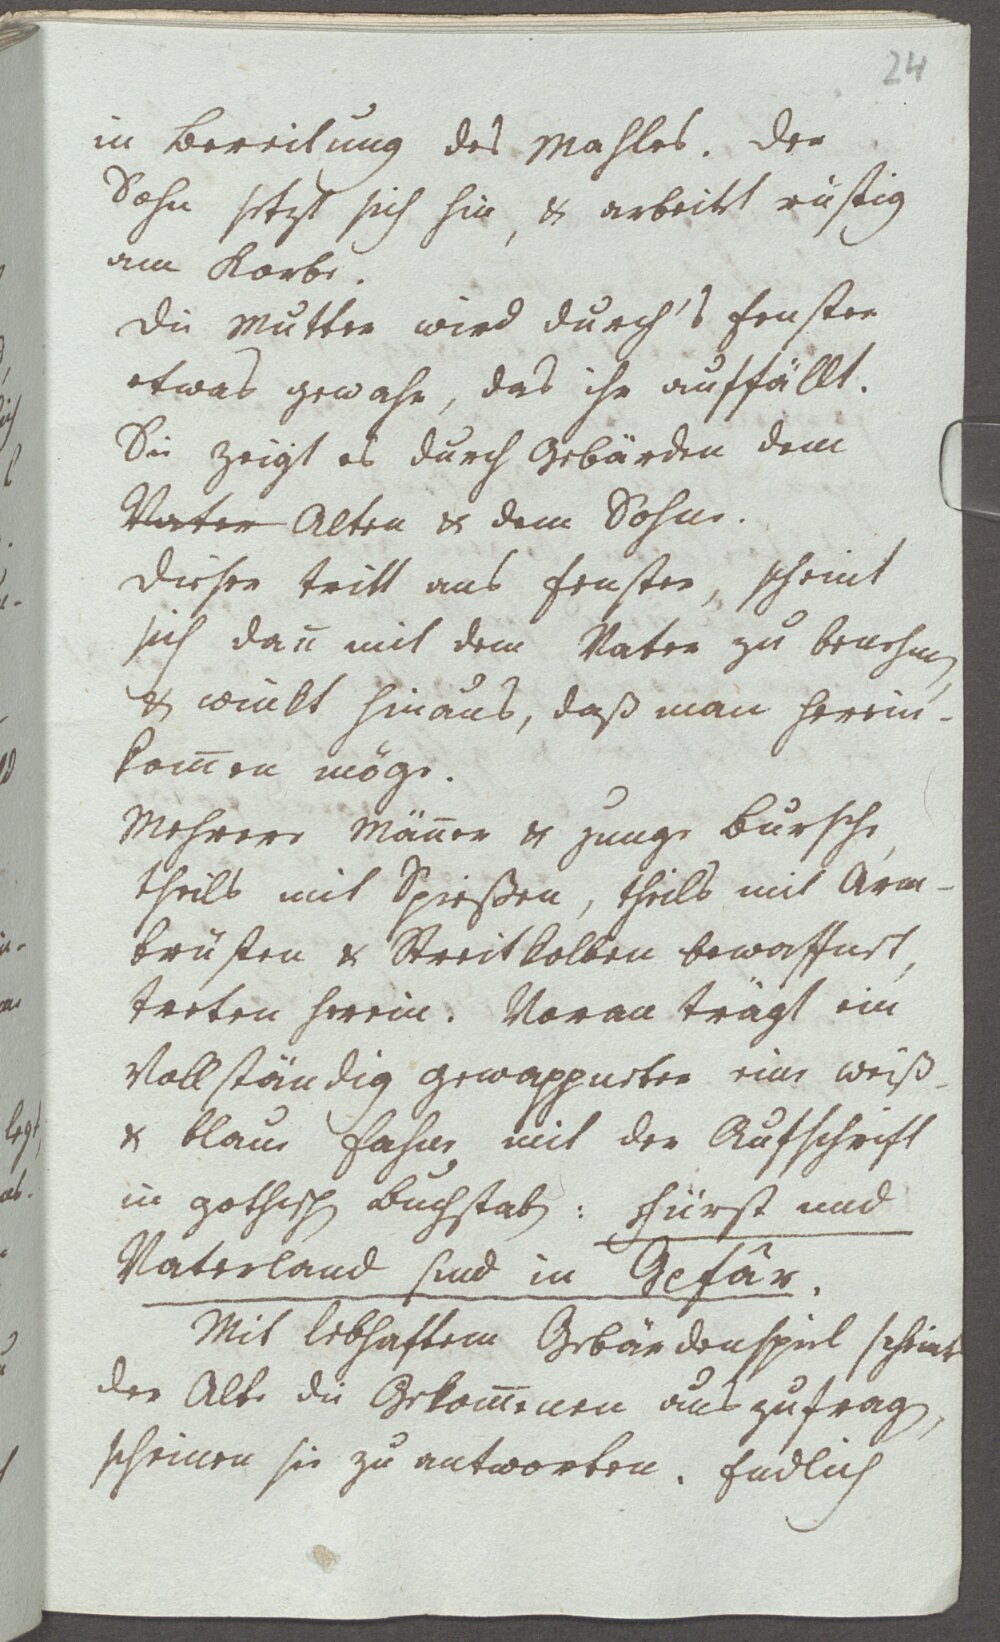 24
in Bereitung des Mahles. Der
Sohn setzt sich hin, & arbeitet rüstig
am Korbe.
Die Mutter wird durch's Fenster
etwas gewahr, das ihr auffällt.
Sie zeigt es durch Gebärden dem
Vater Alten & dem Sohne.
Dieser tritt ans Fenster, scheint
sich dan̄ mit dem Vater zu benehmen,
& winkt hinaus, daß man herein-
kom̄en möge.
Mehrere Män̄er & junge Bursche,
theils mit Spießen, theils mit Arm-
brüsten & Streitkolben bewaffnet,
treten herein. Voran trägt ein
vollständig gewappneter eine weiß-
& blaue Fahne mit der Aufschrift
in gothischen Buchstaben: Fürst und
Vaterland sind in Gefâr.
Mit lebhaftem Gebärdenspiel scheint
der Alte die Gekom̄enen auszufragen,
scheinen sie zu antworten. Endlich